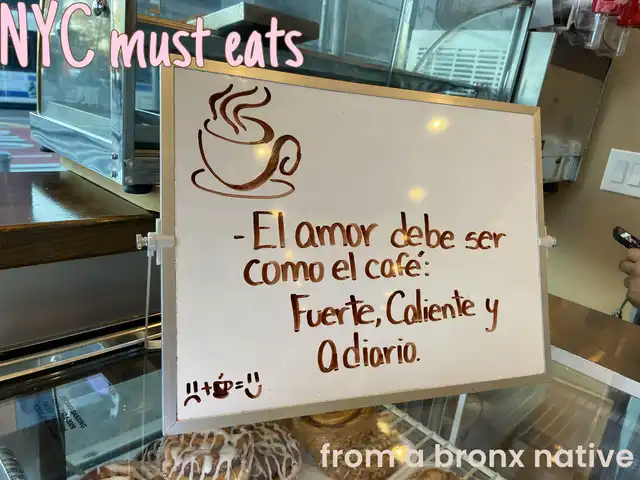 NYC must eats
- El amor debe ser
como el café:
Fuerte, Caliente y
A diario.
from a bronx native